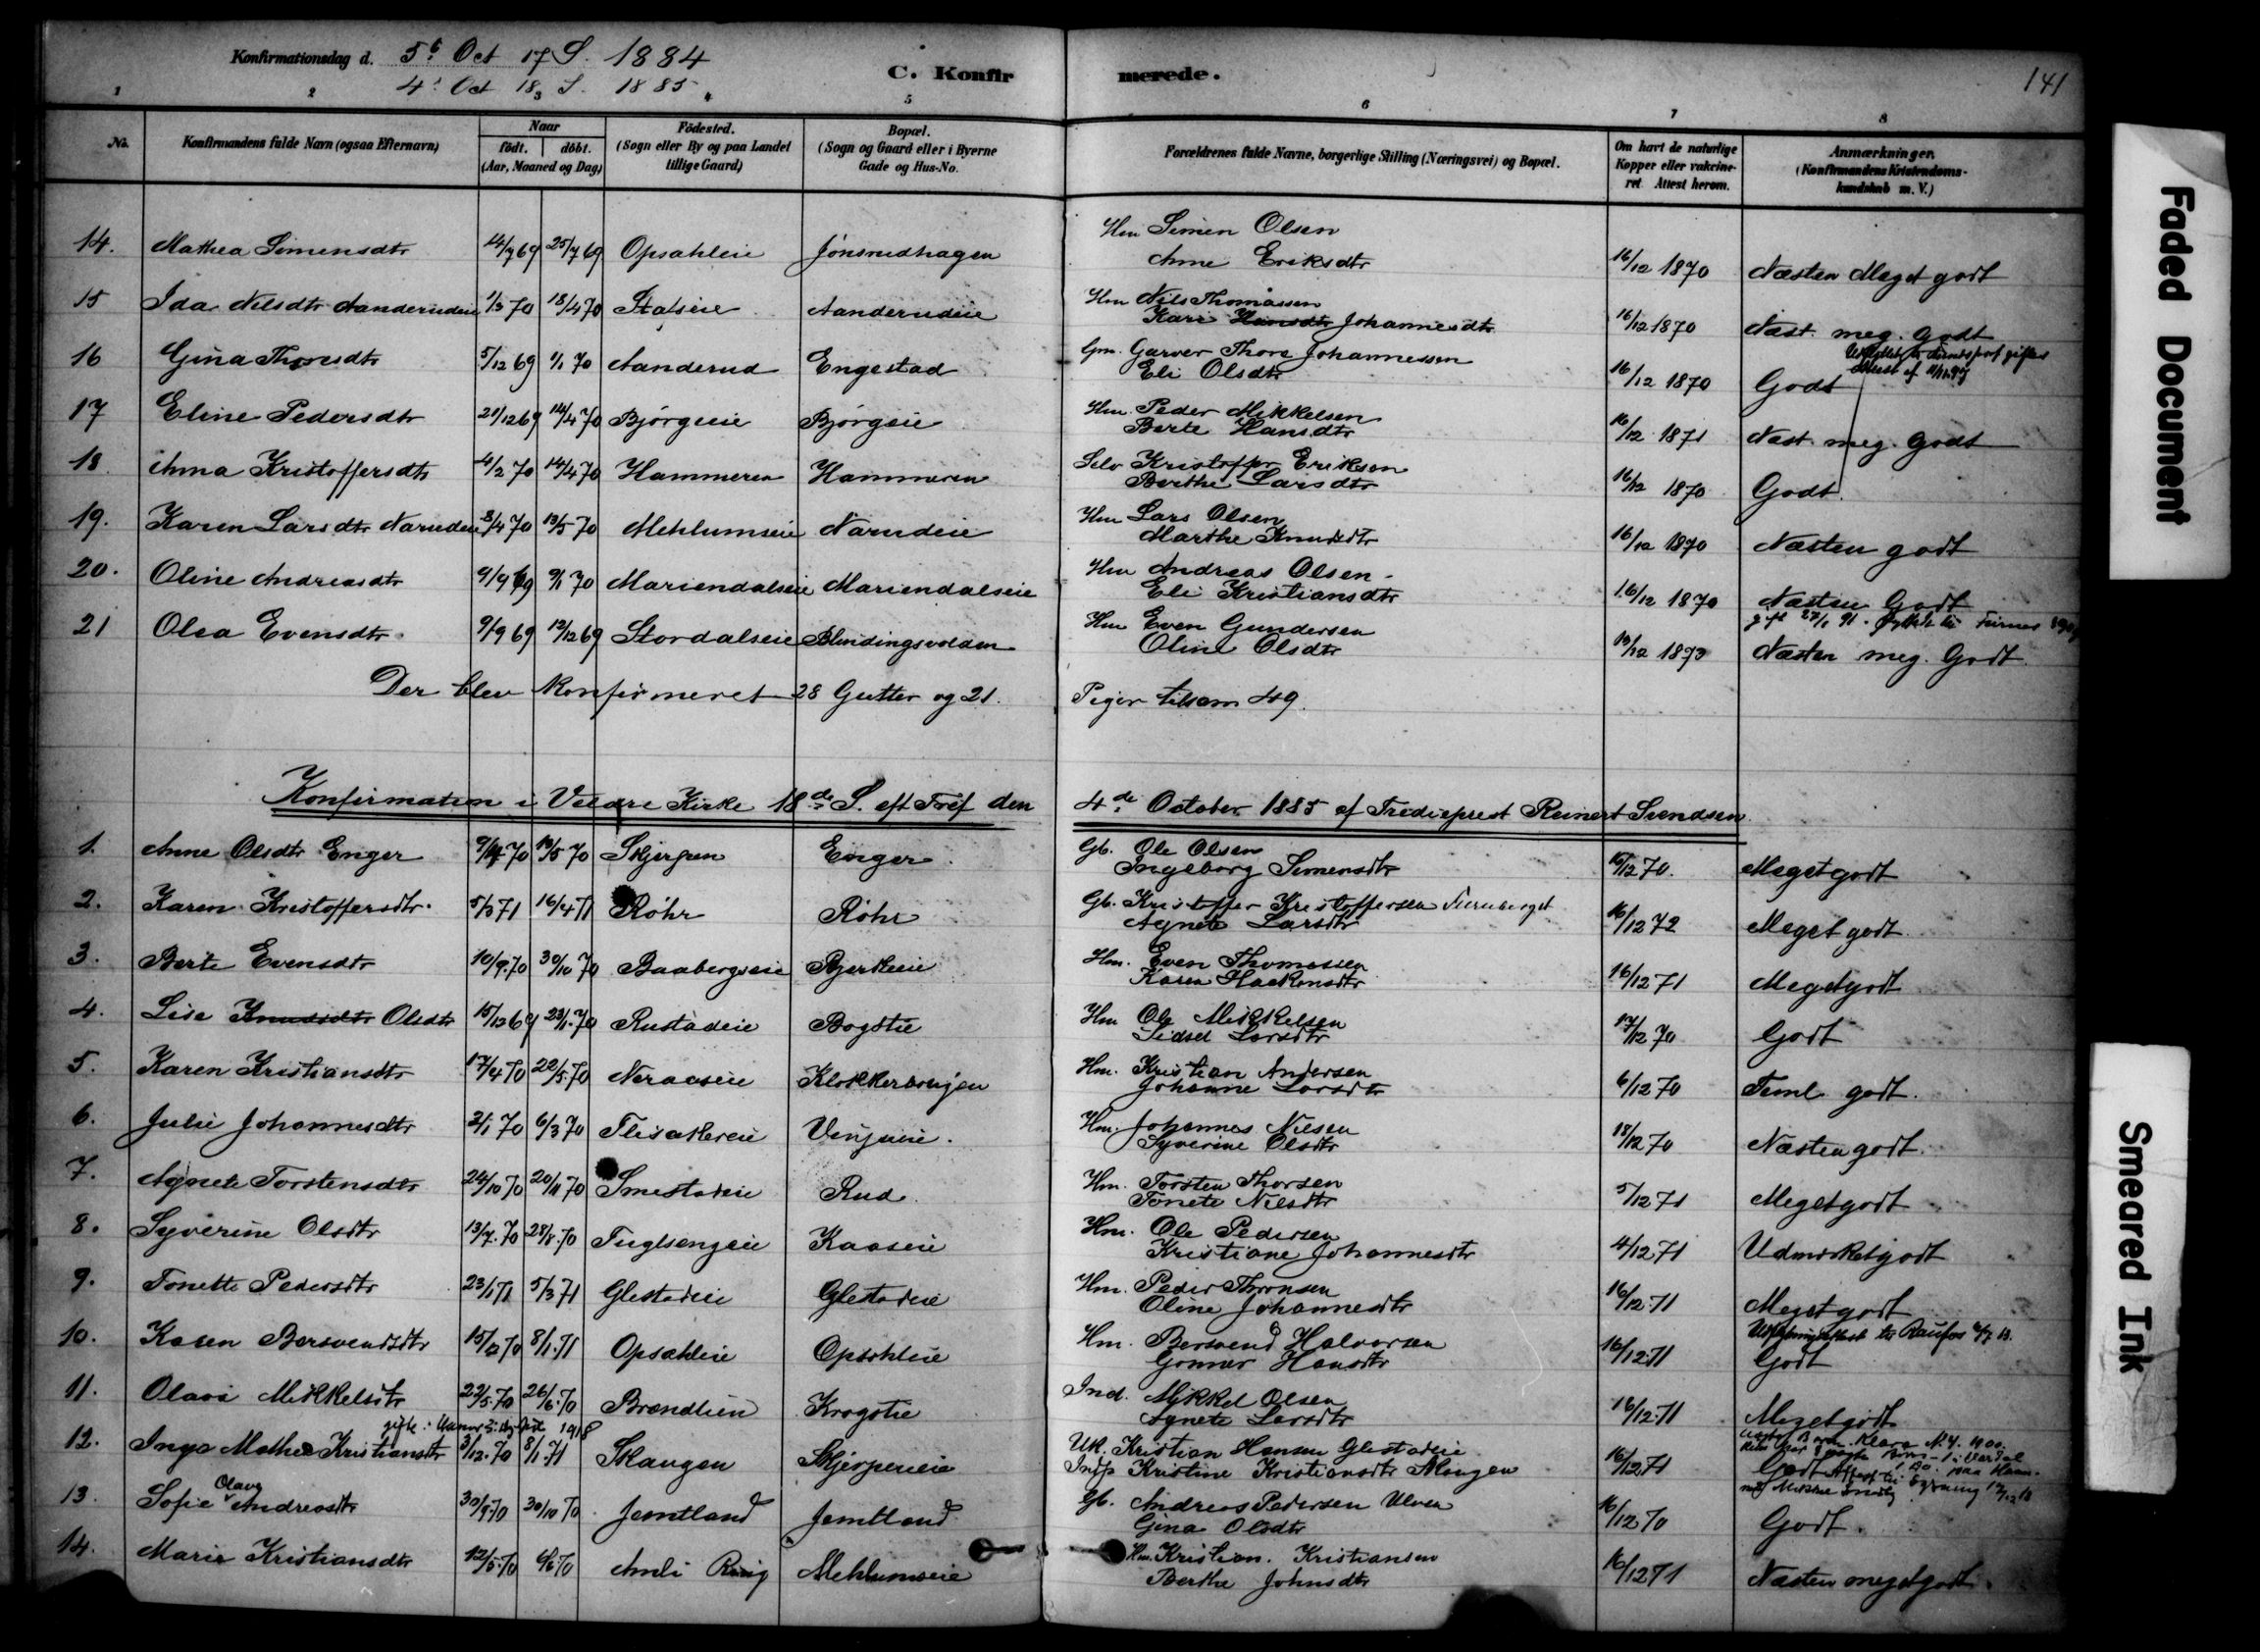 Konfirmationsdag d. 5t Oct 17 S. 1884
4d Oct 18 S. 1885
C. Konfirmerede.
141
1 2 3 4 5 6 7 8
No. Konfirmandens fulde Navn (ogsaa Efternavn) Naar födt. döbt. (Aar, Maaned og Dag) Födested. (Sogn eller By og paa Landet tillige Gaard) Bopæl. (Sogn og Gaard eller i Byerne Gade og Hus-No. Forældrenes fulde Navne, borgerlige Stilling (Næringsvei) og Bopæl. Om havt de naturlige Kopper eller vakcineret Attest herom. Anmærkninger. (Konfirmandens Kristendomskundskab m. V.)
14. Mathea Simensdtr 14/7 69 25/7 69 Opsahleie Jönsrudhagen Hm Simen Olsen
Anne Eriksdtr 16/12 1870 Næsten Meget godt
15 Ida Nilsdtr Aanderudeie 1/3 70 18/4 70 Stalseie Aanderudeie Hm Nils Thomassen
Kari Hansdtr Johannesdtr 16/12 1870 Næst. meg. godt
16 Gina Thoresdtr 5/12 69 1/1 70 Aanderud Engestad Gm. Garver Thore Johannessen
Eli Olsdtr 16/12 1870 Godt
17 Eline Pedersdtr 21/12 69 14/4 70 Bjørgeie Bjørgeie Hm. Peder Mikkelsen
Berte Hansdtr 16/12 1871 Næst meg. Godt
18. Anna Kristoffersdtr 4/2 70 14/4 70 Hammeren Hammeren Selv Kristoffer Eriksen
Berthe Larsdtr 16/12 1870 Godt.
19. Karen Larsdtr Narudeie 8/4 70 13/5 70 Mehlumseie Narudeie Hm Lars Olsen
Marthe Knudsdtr 16/12 1870 Næsten godt
20. Oline Andreasdtr 9/9 69 9/1 70 Mariendalseie Mariendalseie Hm Andreas Olsen
Eli Kristiansdtr 16/12 1870 Næsten Godt
21 Olea Evensdtr. 9/9 69 12/12 69 Stordalseie Blindingsvolden Hm Even Gundersen
Oline Olsdtr 13/12 1873 Næsten meg. Godt
Der blev konfirmeret 28 Gutter og 21. Piger tilsam 49.
Konfirmation i Veldre Kirke 18de S. eft Tref den 4de October 1885 af Trediepræst Reinert Svendsen
1. Anne Olsdtr Enger 9/4 70 13/5 70 Skjerpen Enger Gb. Ole Olsen
Ingeborg Simensdtr 15/12 70. Megetgodt
2. Karen Kristoffersdtr. 5/3 71 16/4 71 Röhr Röhr Gb. Kristoffer Kristoffersen
Agnete Larsdtr 16/12 72 Meget godt
3. Berte Evensdtr 10/9.70 30/10 70 Baabergseie Bjerkeie Hm. Even Thomassen
Karen Haakensdtr 16/12 71 Megetgodt
4. Lise Knudsdtr Olsdtr 15/12 69 23/1.70 Rustadeie Bogstie Hm Ole Mikkelsen
Sidsel Larsdtr 17/12 70 Godt
5. Karen Kristiansdtr 17/4 70 22/5.70 Neraaseie Klokkerbonjen Hm. Kristian Andersen
Johanne Larsdtr 6/12 70 Teml godt.
6. Julie Johannesdtr 2/1 70 6/3 70 Flisakereie Hm. Johannes Nilsen
Syverine Olsdtr 18/12 70 Næsten godt.
7. Agnete Torstensdtr 24/10 70 20/11 70 Smestadeie Rud. Hm. Torsten Thorsen
Tonete Nilsdtr 5/12 71 Megetgodt
8. Syverine Olsdtr 13/7.70 28/8.70 Fuglsengeie Kaaseie Hm. Ole Pedersen
Kristiane Johannesdtr 4/12.71 Udmerketgodt
9. Tonette Pedersdtr 23/1 71 5/3 71 Glestadeie Glestadeie Hm. Peder Thronsen
Oline Johannesdtr 16/12.71 Megetgodt
10. Karen Bersvendsdtr 15/12 70 8/1.71 Opsahleie Opsahleie Hm. Bersvend Halvorsen
Gunnor Hansdtr 16/12.71 Godt
11. Olava Mikkelsdtr 22/5.70 26/6.70 Brændlien Krogstie Ind. Mikkel Olsen
Agnete Larsdtr 16/12.71 Megetgodt
12. Inga Mathea Kristiansdtr 3/12.70 8/1.71 Skaugen Skjerpeneie Uk. Kristian Hansen Glestadeie
Indp Kristine Kristiansdtr 16/12.71 Godt
13. Sofie Olava Andreasdtr 30/9.70 30/10 70 Jemtland Jemtland Gb. Andreas Pedersen Ulven
Gina Olsdtr 16/12 70 Godt.
14. Marie Kristiansdtr 12/5.70 6/6 70 Amli Ring Mehlumseie Hm. Kristian Kristiansen
Berthe Johnsdtr 16/12 71 Næsten megetgodt.
Faded Document
Smeared Ink